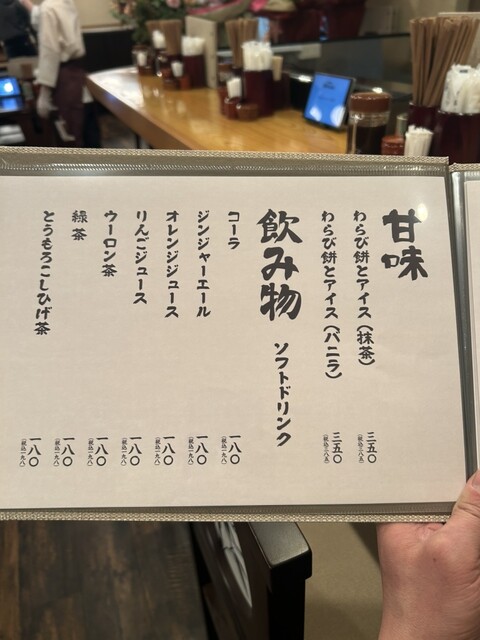 甘味
わらび餅とアイス（抹茶） 三五〇
（税込三八五）
わらび餅とアイス（バニラ） 三五〇
（税込三八五）
飲み物 ソフトドリンク
コーラ 一八〇
（税込一九八）
ジンジャーエール 一八〇
（税込一九八）
オレンジジュース 一八〇
（税込一九八）
りんごジュース 一八〇
（税込一九八）
ウーロン茶 一八〇
（税込一九八）
緑茶 一八〇
（税込一九八）
とうもろこしひげ茶 一八〇
（税込一九八）